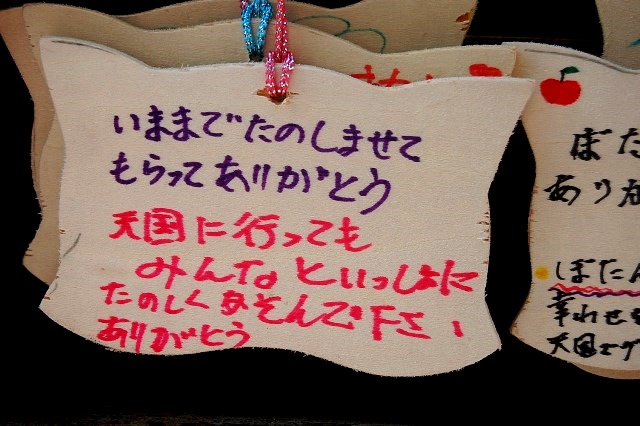 いままでたのしませて
もらってありがとう
天国に行っても
みんなといっしょに
たのしくあそんで下さい
ありがとう
ぼた
ありが
ぼたん
幸せ
天国で